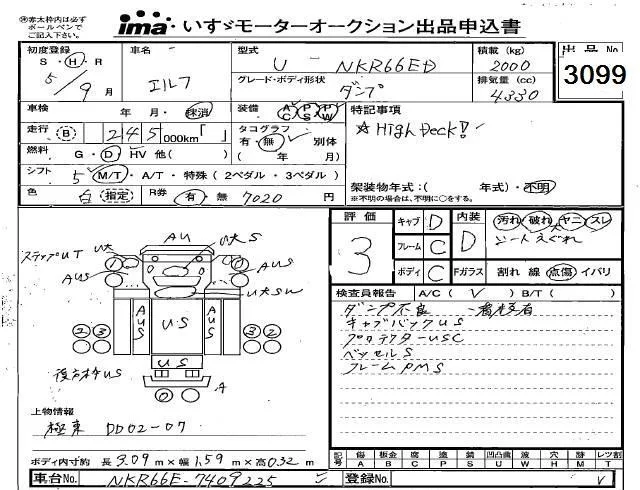 ※赤太枠内は必ず
ボールペンで
ご記入下さい。
ima いすゞモーターオークション出品申込書
初度登録 車名 型式 積載 (kg) 出品 No
S ・ H ・ R エルフ U - NKR66ED 2000 3099
5/9月 グレード・ボディ形状 ダンプ 排気量 (cc) 4330
車検 年 月・抹消 装備 AC PS PW 特記事項
走行 B 245,000km「 」 タコグラフ 有・無 別体 ( 年 月) ☆ High Deck!!
燃料 G・D・HV 他( )
シフト 5 M/T・A/T・特殊(2ペダル・3ペダル) 架装物年式:( 年式)・不明
色 白 指定 R券 有・無 7020 円 ※不明の場合は、不明に○をする。
評価 3 キャブ D 内装 D 汚れ 破れ ヤニ スレ
フレーム C シートえぐれ 大
ボディ C Fガラス 割れ 線 点傷 イバリ
検査員報告 A/C( ✓ ) B/T( )
ダンプ不良
キャブバックUS
プロテクターUSC
ベッセルS
フレームPMS
ステップUT U大 AU U大S
AUS AUS
U大SW
AUS U・S AUS
② ③ ③ ②
US
後方枠US A
上物情報
極東 DD02-07
ボディ内寸約 長 3.09 m×幅 1.59 m×高 0.32 m
記号 傷 板金 腐 塗 錆 凹凸曲 波 穴 跡 レツ割
A B C P S U W H M T
車台No. NKR66E-7409225 登録No. ✓